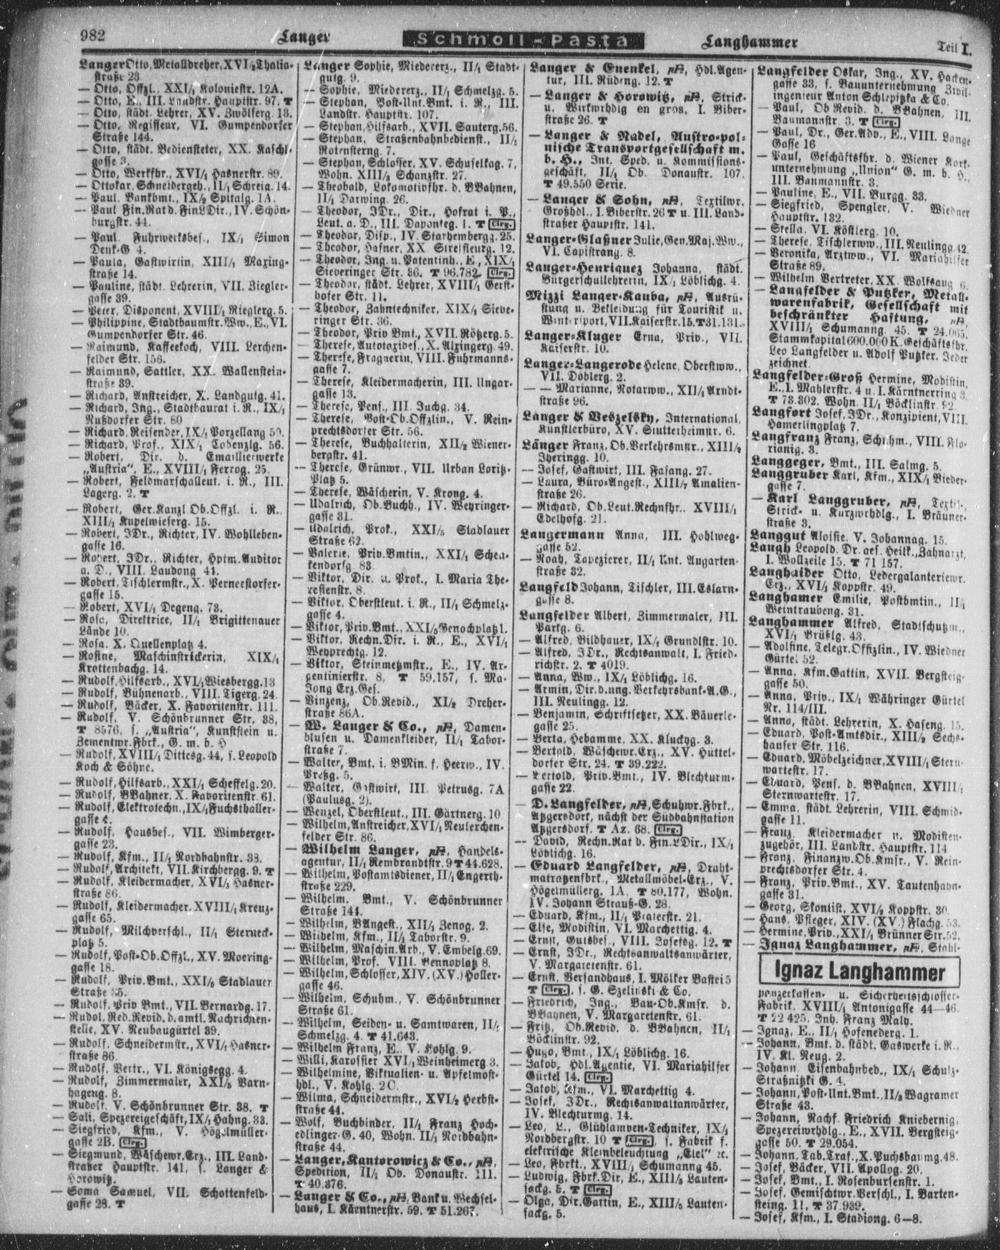 982
Langer
Schmoll-Pasta
Langhammer
Teil I.
Langer Otto, Metalldreher, XVI/2 Thalia-
straße 23
— Otto, Offzl., XXI/4 Koloniestr. 12A.
— Otto, E., III. Landstr. Hauptstr. 97. T
— Otto, städt. Lehrer, XV. Zwölferg. 13.
— Otto, Regisseur, VI. Gumpendorfer
Straße 144.
— Otto, städt. Bediensteter, XX. Kaschl-
gasse 3.
— Otto, Werkfhr., XVI/1 Hasnerstr. 89.
— Ottokar, Schneidergeh., II/1 Schreig. 14.
— Paul, Bankbmt., IX/2 Spitalg. 1A.
— Paul, Fin.Rat d. Fin.Dir., IV. Schön-
burgstr. 44.
— Paul, Fuhrwerksbes., IX/1 Simon
Denk-G. 4.
— Paula, Gastwirtin, XIII/1 Maxing-
straße 14.
— Pauline, städt. Lehrerin, VII. Ziegler-
gasse 39.
— Peter, Disponent, XVIII/1 Rieglerg. 5.
— Philippine, Stadtbaumstr.Ww., E., VI.
Gumpendorfer Str. 46.
— Raimund, Kaffeekoch, VIII. Lerchen-
felder Str. 156.
— Raimund, Sattler, XX. Wallenstein-
straße 39.
— Richard, Anstreicher, X. Landgutg. 41.
— Richard, Ing., Stadtbaurat i. R., IX/1
Nußdorfer Str. 60
— Richard, Reisender, IX/1 Porzellang. 50.
— Richard, Prof., XIX/1 Cobenzlg. 56.
— Robert, Dir. d. Emaillierwerke
„Austria“, E., XVIII/1 Ferrog. 25.
— Robert, Feldmarschalleut. i. R., III.
Lagerg. 2. T
— Robert, Ger.Kanzl.Ob.Offzl. i. R.,
XIII/1 Kupelwieserg. 15.
— Robert, JDr., Richter, IV. Wohlleben-
gasse 16.
— Robert, JDr., Richter, Hptm.Auditor
a. D., VIII. Laudong. 41.
— Robert, Tischlermstr., X. Pernerstorfer-
gasse 15.
— Robert, XVI/1 Degeng. 73.
— Rosa, Direktrice, II/1 Brigittenauer
Lände 10.
— Rosa, X. Quellenplatz 4.
— Rosine, Maschinstrickerin, XIX/1
Krottenbachg. 14.
— Rudolf, Hilfsarb., XVI/1 Wiesbergg. 13
— Rudolf, Bühnenarb., VIII. Tigerg. 24.
— Rudolf, Bäcker, X. Favoritenstr. 111.
— Rudolf, V. Schönbrunner Str. 38,
T 8576, s. „Austria“, Kunststein u.
Zementwr.Fbrk., G. m. b. H
— Rudolf, XVIII/1 Dittesg. 44, s. Leopold
Koch & Söhne.
— Rudolf, Hilfsarb., XXI/1 Scheffelg. 20.
— Rudolf, BBahner, X. Favoritenstr. 61.
— Rudolf, Elektrotechn., IX/1 Fuchsthaller-
gasse
— Rudolf, Hausbes., VII. Wimberger-
gasse 23.
— Rudolf, Kfm., II/1 Nordbahnstr. 33.
— Rudolf, Architekt, VII. Kirchbergg. 9. T
— Rudolf, Kleidermacher, XVI/1 Hasner-
straße 86.
— Rudolf, Kleidermacher, XVIII/1 Kreuz-
gasse 65.
— Rudolf, Milchverschl., II/1 Sterneck-
platz 5.
— Rudolf, Post-Ob.Offzl., XV. Moering-
gasse 18.
— Rudolf, Priv.Bmt., XXI/4 Stadlauer
Straße
— Rudolf, Priv.Bmt., VII. Bernardg. 17.
— Rudolf, Red.Revid. d. amtl. Nachrichten-
stelle, XV. Neubaugürtel 39.
— Rudolf, Schneidermstr., XVI/1 Hasner-
straße 86.
— Rudolf, Vertr., VI. Königsegg. 4.
— Rudolf, Zimmermaler, XXI/3 Varn-
hageng. 8.
— Rudolf, V. Schönbrunner Str. 38. T
— Sali, Spezereigeschäft, IX/1 Hahng. 33.
— Siegfried, Kfm., V. Höglmüller-
gasse 2B. Clrg.
— Siegmund, Wäschewr.Erz., III. Land-
straßer Hauptstr. 141, s. Langer &
Horowitz.
— Soma Samuel, VII. Schottenfeld-
gasse 28. T
Langer Sophie, Miedererz., II/1 Stadt-
gutg. 9.
— Sophie, Miedererz., II/1 Schmelzg. 5.
— Stephan, Post-Unt.Bmt. i. R., III.
Landstr. Hauptstr. 107.
— Stephan, Hilfsarb., XVII. Sauterg. 56.
— Stephan, Straßenbahnbedienst., II/1
Rotensterng. 7.
— Stephan, Schlosser, XV. Schuselkag. 7,
Wohn. XIII/2 Schanzstr. 27.
— Theobald, Lokomotivfhr. d. BBahnen,
II/1 Darwing. 26.
— Theodor, JDr., Dir., Hofrat i. P.,
Leut. a. D., III. Daponteg. 1. T Clrg.
— Theodor, Disp., IV. Starhembergg. 25.
— Theodor, Hafner, XX. Streffleurg. 12.
— Theodor, Ing. u. Patentinh., E., XIX/1
Sieveringer Str. 36. T 96.782. Clrg.
— Theodor, städt. Lehrer, XVIII/1 Gerst-
hofer Str. 11.
— Theodor, Zahntechniker, XIX/1 Sieve-
ringer Str. 36.
— Theodor, Priv.Bmt., XVII. Rötzerg. 5.
— Therese, Autotaxidel., X. Alxingerg. 49.
— Therese, Fragnerin, VIII. Fuhrmanns-
gasse 7.
— Therese, Kleidermacherin, III. Ungar-
gasse 13.
— Therese, Pens., III. Juchg. 34.
— Therese, Post-Ob.Offzlin., V. Rein-
prechtsdorfer Str. 56.
— Therese, Buchhalterin, XII/2 Wiener-
bergstr. 41.
— Therese, Grünwr., VII. Urban Loritz-
Platz 5.
— Therese, Wäscherin, V. Krong. 4.
— Udalrich, Ob.Buchh., IV. Weyringer-
gasse 31.
— Udalrich, Prok., XXI/5 Stadlauer
Straße 62.
— Valerie, Priv.Bmtin., XXI/4 Schen-
kendorfg. 83.
— Viktor, Dir. u. Prok., I. Maria The-
resienstr. 8.
— Viktor, Oberstleut. i. R., II/1 Schmelz-
gasse 4.
— Viktor, Priv.Bmt., XXI/3 Genochplatz 1.
— Viktor, Rechn.Dir. i. R., E., XVI/1
Weyprechtg. 12.
— Viktor, Steinmetzmstr., E., IV. Ar-
gentinierstr. 8, T 59.157, s. Ma-
Jong Erz.Ges.
— Vinzenz, Ob.Revid., XI/2 Dreher-
straße 86A.
— W. Langer & Co., pH, Damen-
blusen u. Damenkleider, II/1 Tabor-
straße 7.
— Walter, Bmt. i. BMin. f. Heerw., IV.
Preßg. 5.
— Walter, Gastwirt, III. Petrusg. 7A
(Paulusg. 2).
— Wenzel, Oberstleut., III. Gärtnerg. 10
— Wilhelm, Anstreicher, XVI/1 Neulerchen-
felder Str. 86.
— Wilhelm Langer, pH, Handels-
agentur, II/1 Rembrandtstr. 9 T 44.628.
— Wilhelm, Postamtsdiener, II/1 Engerth-
straße 229.
— Wilhelm, Bmt., V. Schönbrunner
Straße 144.
— Wilhelm, BAngest., XII/1 Zenog. 2.
— Wilhelm, Kfm., II/1 Taborstr. 9.
— Wilhelm, Maschin.Arb., V. Embelg. 69.
— Wilhelm, Prof., VIII. Bennoplatz 8.
— Wilhelm, Schlosser, XIV. (XV.) Holler-
gasse 46.
— Wilhelm, Schuhm., V. Schönbrunner
Straße 61.
— Wilhelm, Seiden- u. Samtwaren, II/1
Schmelzg. 4. T 41.643.
— Wilhelm Franz, E., V. Kohlg. 9.
— Willi, Karossier, XVI/1 Weinheimerg 3.
— Wilhelmine, Viktualien- u. Apfelmost-
hdl., V. Kohlg. 20.
— Wilma, Schneidermstr., XVI/2 Herbst-
straße 44.
— Wolf, Buchbinder, II/1 Franz Hoch-
edlinger-G. 40, Wohn. II/1 Nordbahn-
straße 44.
— Langer, Kantorowicz & Co., pH,
Spedition, II/1 Ob. Donaustr. 111.
T 40.876.
— Langer & Co., pH, Bank u. Wechsel-
haus, I. Kärntnerstr. 59. T 51.267.
Langer & Enenkel, pH, Hdl.Agen-
tur, III. Rüdeng. 12. T
— Langer & Horowitz, pH, Strick-
u. Wirkwrhdlg en gros, I. Biber-
straße 26. T
— Langer & Nadel, Austro-pol-
nische Transportgesellschaft m.
b. H., Int. Sped. u. Kommissions-
geschäft, II/1 Ob. Donaustr. 107.
T 49.550 Serie.
— Langer & Sohn, pH, Textilwr.
Großhdl., I. Biberstr. 26 T u. III. Land-
straßer Hauptstr. 141.
Langer-Glaßner Julie, Gen.Maj.Ww.,
VI. Capistrang. 8.
Langer-Henriquez Johanna, städt.
Bürgerschullehrerin, IX/1 Löblichg. 4.
Mizzi Langer-Kauba, pH, Ausrü-
stung u. Bekleidung für Touristik u.
Wintersport, VII. Kaiserstr. 15. T 31.131.
Langer-Kluger Erna, Priv., VII.
Kaiserstr. 10.
Langer-Langerode Helene, Oberstww.,
VII. Döblerg. 2.
— Marianne, Notarww., XII/1 Arndt-
straße 96.
Langer & Veszelsky, International.
Künstlerbüro, XV. Stutterheimstr. 6.
Länger Franz, Ob.Verkehrsmstr., XIII/1
Iheringg. 10.
— Josef, Gastwirt, III. Fasang. 27.
— Laura, Büro-Angest., XIII/7 Amalien-
straße 26.
— Richard, Ob.Leut.Rechnsfhr., XVIII/1
Edelhofg. 21.
Langermann Anna, III. Hohlweg-
gasse 52.
— Noah, Tapezierer, II/1 Unt. Augarten-
straße 32.
Langfeld Johann, Tischler, III. Eslarn-
gasse 8.
Langfelder Albert, Zimmermaler, III.
Parkg. 6.
— Alfred, Bildhauer, IX/4 Grundlstr. 10.
— Alfred, JDr., Rechtsanwalt, I. Fried-
richstr. 2. T 4019.
— Anna, Ww., IX/1 Löblichg. 16.
— Armin, Dir. d. ung. Verkehrsbank-A.G.,
III. Neulingg. 12.
— Benjamin, Schriftsetzer, XX. Bäuerle-
gasse 25.
— Berta, Hebamme, XX. Kluckyg. 3.
— Bertold, Wäschewr.Erz., XV. Hüttel-
dorfer Str. 24. T 39.222.
— Bertold, Priv.Bmt., IV. Blechturm-
gasse 22.
— D. Langfelder, pH, Schuhwr.Fbrk.,
Atzgersdorf, nächst der Südbahnstation
Atzgersdorf. T Az. 68. Clrg.
— David, Rechn.Rat d. Fin.LDir., IX/1
Löblichg. 16.
— Eduard Langfelder, pH, Draht-
matratzenfbkt., Metallmöbel-Erz., V.
Högelmüllerg. 1A, T 80.177, Wohn.
IV. Johann Strauß-G. 28.
— Eduard, Kfm., II/1 Praterstr. 21.
— Else, Modistin, VI. Marchettig. 4.
— Ernst, Gutsbes., VIII. Josefsg. 12. T
— Ernst, JDr., Rechtsanwaltsanwärter,
V. Margaretenstr. 61.
— Ernst, Versandhaus, I. Mölker Bastei 5
T Clrg., s. G. Szelinski & Co.
— Friedrich, Ing., Bau-Ob.Kmsr. d.
BBahnen, V. Margaretenstr. 61.
— Fritz, Ob.Revid. d. BBahnen, II/1
Böcklinstr. 92.
— Hugo, Bmt., IX/1 Löblichg. 16.
— Jakob, Hdl.Agentie, VI. Mariahilfer
Gürtel 14. Clrg.
— Jakob, Kfm., VI. Marchettig. 4
— Josef, JDr., Rechtsanwaltanwärter,
IV. Blechturmg. 14.
— Leo, L., Glühlampen-Techniker, IX/1
Nordbergstr. 10 T Clrg. s. Fabrik f.
elektrische Kleinbeleuchtung „Ciel“ 2c.
— Leo, Fbrkt., XVIII/1 Schumanng. 45.
— Ludwig, Fbrk.Dir., E., XIII/5 Lauten-
sackg. 5. T Clrg.
— Olga, Dir.Gattin, E., XIII/5 Lauten-
sackg. 5.
Langfelder Oskar, Ing., XV. Hacken-
gasse 33, s. Bauunternehmung Zivil-
ingenieur Anton Schlepitzka & Co.
— Paul, Ob.Revid. d. BBahnen, III.
Baumannstr. 3. T Clrg.
— Paul, Dr., Ger.Adv., E., VIII. Lange
Gasse 16
— Paul, Geschäftsfhr. d. Wiener Kork-
unternehmung „Union“ G. m. b. H.,
III. Baumannstr. 3.
— Pauline, E., VII. Burgg. 33.
— Siegfried, Spengler, V. Wiedner
Hauptstr. 132.
— Stella, VI. Köstlerg. 10.
— Therese, Tischlerww., III. Neulingg. 42
— Veronika, Arztww., VI. Mariahilfer
Straße 89.
— Wilhelm, Vertreter, XX. Wolfsaug. 6.
— Langfelder & Putzker, Metall-
warenfabrik, Gesellschaft mit
beschränkter Haftung, pH,
XVIII/1 Schumanng. 45. T 24.065.
Stammkapital 600.000 K. Geschäftsfhr.
Leo Langfelder u. Adolf Putzker. Jeder
zeichnet.
Langfelder-Groß Hermine, Modistin,
E., I. Mahlerstr. 4 u. I. Kärntnerring 3.
T 73.302. Wohn. II/1 Böcklinstr. 92
Langfort Josef, JDr., Konzipient, VIII.
Hamerlingplatz 7.
Langfranz Franz, Schi.hm., VIII. Flo-
rianig. 3.
Langgeger, Bmt., III. Salmg. 5.
Langgruber Karl, Kfm., XIX/1 Wieder-
gasse 7.
— Karl Langgruber, pH, Textil-,
Strick- u. Kurzwrhdlg., I. Bräuner-
straße 3.
Langgut Aloisie, V. Johannag. 15.
Langh Leopold, Dr. aes. Heilk., Zahnarzt,
I. Wollzeile 15. T 71 157.
Langhaider Otto, Ledergalanteriewr.
Erz., XVI/1 Koppstr. 49.
Langhamer Emilie, Postbmtin., II/1
Weintraubeng. 31.
Langhammer Alfred, Stadtschutzm.,
XVI/1 Brüßlg. 43.
— Adolfine, Telegr.Offzlin., IV. Wiedner
Gürtel 52.
— Anna, Kfm.Gattin, XVII. Bergsteig-
gasse 50.
— Anna, Priv., IX/1 Währinger Gürtel
Nr. 114/III.
— Anna, städt. Lehrerin, X. Hafeng. 15.
— Eduard, Post-Amtsdir., XIII/2 Sechs-
hauser Str. 116.
— Eduard, Möbelzeichner, XVIII/1 Stern-
wartestr. 17.
— Eduard, Pens. d. BBahnen, XVIII/1
Sternwartestr. 17.
— Emma, städt. Lehrerin, VIII. Schmid-
gasse 11.
— Franz, Kleidermacher u. Modisten-
zugehör, III. Landstr. Hauptstr. 114
— Franz, Finanzw.Ob.Kmsr., V. Rein-
prechtsdorfer Str. 4.
— Franz, Priv.Bmt., XV. Tautenhayn-
gasse 31.
— Georg, Skontist, XVI/2 Koppstr. 30.
— Hans, Pfleger, XIV. (XV.) Flachg. 53.
— Hermine, Priv., XXI/1 Brünner Str. 52.
— Ignaz Langhammer, pH, Stahl-
Ignaz Langhammer
panzerkassen- u. Sicherheitsschlösser-
Fabrik, XVIII/1 Antonigasse 44—46.
T 22 425. Inh. Franz Maly.
— Ignaz, E., II/1 Hofenederg. 1.
— Johann, Bmt. d. städt. Gaswerke i. R.,
IV. Kl. Neug. 2.
— Johann, Eisenbahnbed., IX/4 Schulz-
Straßnitzki G. 4.
— Johann, Post-Unt.Bmt., II/2 Wagramer
Straße 43.
— Johann, Nachf. Friedrich Kniebernig,
Spezereiwrhdlg., E., XVII. Bergsteig-
gasse 50. T 29.054.
— Johann, Tab.Traf., X. Puchsbaumg. 48.
— Josef, Bäcker, VII. Apollog. 20.
— Josef, Bmt., I. Rosenbursenstr. 1.
— Josef, Gemischtwr.Verschl., I. Barten-
steing. 11. T 37.939.
— Josef, Kfm., I. Stadiong. 6—8.